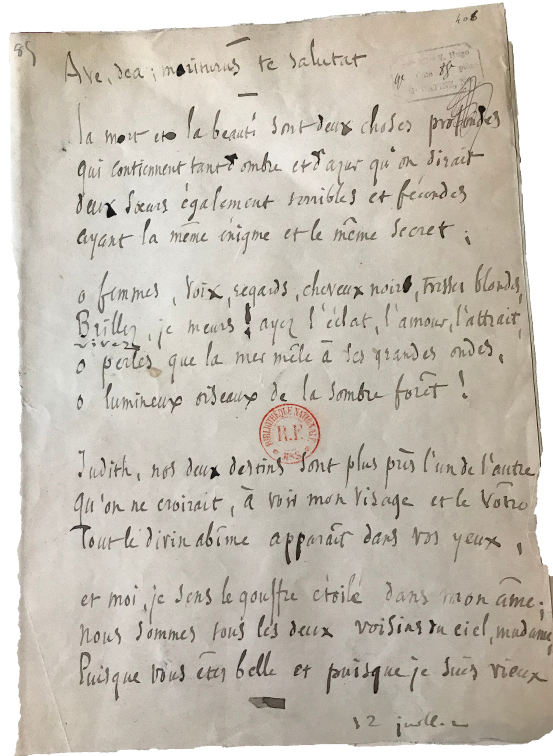 85
406
Ave, dea ; moriturus te salutat
La mort et la beauté sont deux choses profondes
qui contiennent tant d'ombre et d'azur qu'on dirait
deux sœurs également terribles et fécondes
ayant la même énigme et le même secret ;
o femmes, voix, regards, cheveux noirs, tresses blondes,
Brillez, je meurs ! ayez l'éclat, l'amour, l'attrait,
vivez
o perles que la mer mêle à ses grandes ondes,
o lumineux oiseaux de la sombre forêt !
BIBLIOTHÈQUE NATIONALE
R.F.
Judith, nos deux destins sont plus près l'un de l'autre
Qu'on ne croirait, à voir mon visage et le vôtre
Tout le divin abîme apparaît dans vos yeux,
et moi, je sens le gouffre étoilé dans mon âme ;
nous sommes tous les deux voisins du ciel, madame,
Puisque vous êtes belle et puisque je suis vieux
12 juillet